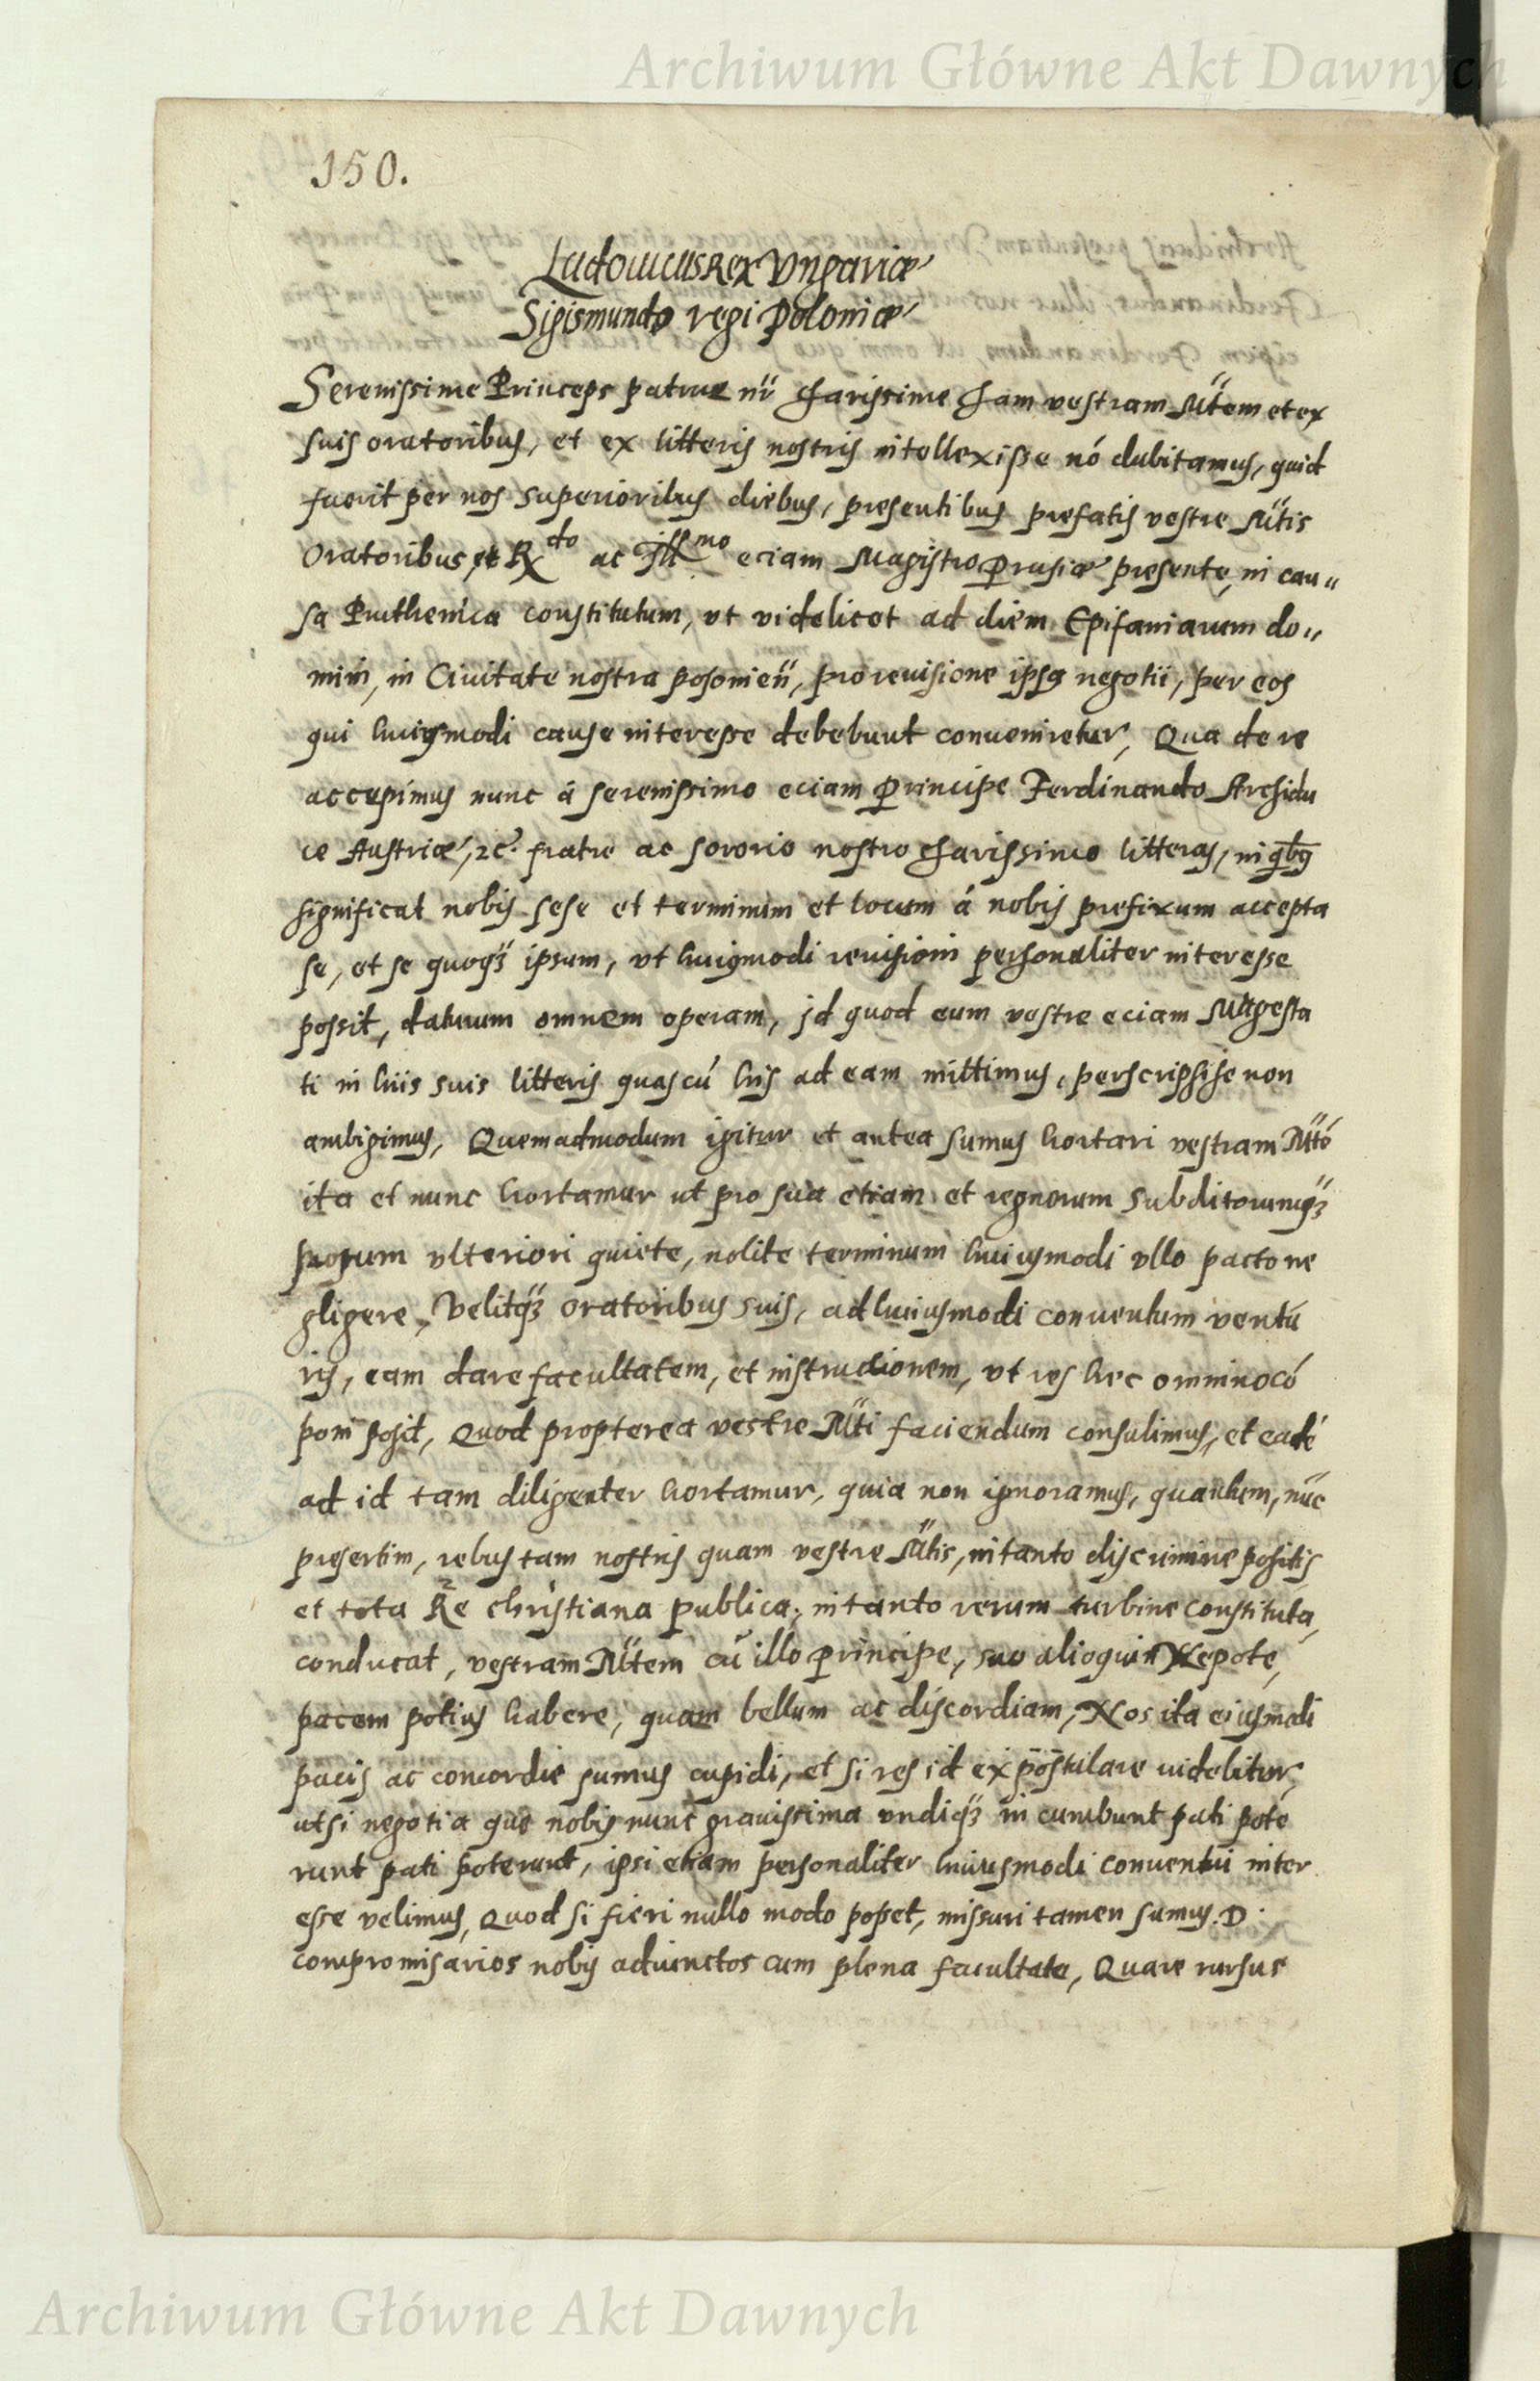 Archiwum Główne Akt Dawnych
150.
Ludouicus Rex Vngariæ
Sigismundo regi Poloniæ
Serenissime Princeps patrue nr̃ charissime Iam vestram Mtem et ex
suis oratoribus, et ex litteris nostris intellexisse nó dubitamus, quid
fuerit per nos superioribus diebus, presentibus prefatis vestre Mtis
Oratoribus, et Rdo ac Illmo eciam Magistro Prusiæ presente, in cau„
sa Pruthenica constitutum, vt videlicet ad diem Epifaniarum do„
mini, in Ciuitate nostra posonien̄, pro reuisione ipsius negotii, per eos
qui huiusmodi cause interesse debebunt conueniretur, Qua de re
accepimus nunc á serenissimo eciam Principe Ferdinando Archidu
ce Austriæ, ꝛc̃. fratre ac sororio nostro charissimo litteras, in qbꝫ
significat nobis sese et terminum et locum á nobis prefixum accepta
se, et se quoqꝫ ipsum, vt huiusmodi reuisioni personaliter interesse
possit, daturum omnem operam, id quod eum vestre eciam Magesta
ti in hiis suis litteris quas cú his ad eam mittimus, perscripsisse non
ambigimus, Quemadmodum igitur et antea sumus hortari vestram Mtó
ita et nunc hortamur ut pro sua etiam et regnorum subditorumqꝫ
suorum vlteriori quiete, nolite terminum huiusmodi vllo pacto ne
gligere, Velitqꝫ oratoribus suis, ad huiusmodi conuentum ventu
ris, eam dare facultatem, et instructionem, vt res hec omnino có
poni posit, Quod propterea vestre Mti faciendum consulimus, et eadé
ad id tam diligenter hortamur, quia non ignoramus, quantum, nūc
presertim, rebus tam nostris quam vestre Mtis, in tanto discrimine positis
et tota Re christiana publica, in tanto rerum turbine constituta,
conducat, vestram Mtem cū illo principe, suo alioquin Nepote,
pacem potius habere, quam bellum ac discordiam, Nos ita eiusmodi
pacis ac concordie sumus cupidi, et si res id expostulare uidebitur,
ut si negotia que nobis nunc grauissima vndiqꝫ incumbunt pati pote
runt pati poterunt, ipsi etiam personaliter huiusmodi conuentui inter
esse velimus, Quod si fieri nullo modo posset, missuri tamen sumus. D.
compromisarios nobis adiunctos cum plena facultate, Quare rursus
Archiwum Główne Akt Dawnych